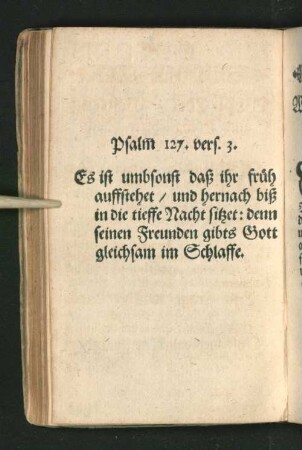 Psalm 127. vers. 3.
Es ist umbsonst daß ihr früh
auffstehet / und hernach biß
in die tieffe Nacht sitzet: denn
seinen Freunden gibts Gott
gleichsam im Schlaffe.